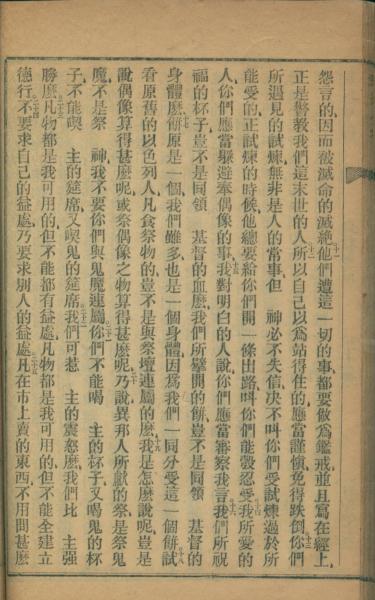 怨言的因而被滅命的滅絶他們十一他們遭這一切的事都要做爲鑑戒並且寫在經上
正是警教我們這末世的人十二所以自己以爲站得住的應當謹愼免得跌倒十三你們
所遇見的試煉無非是人的常事但 神必不失信决不叫你們受試煉過於所
能受的正試煉的時候他總要給你們開一條出路叫你們能彀忍受十四我所愛的
人你們應當躱避奉偶像的事十五我對明白的人說你們應當審察我言十六我們所祝
福的杯子豈不是同領 基督的血麽我們所擘開的餅豈不是同領 基督的
身體麽十七餅原是一個我們雖多也是一個身體因爲我們一同分受這一個餅十八試
看原舊的以色列人凡食祭物的豈不是與祭壇連屬的麽十九我是怎麽說呢豈是
說偶像算得甚麽呢或祭偶像之物算得甚麽呢二十乃說異邦人所獻的祭是祭鬼
魔不是祭 神我不要你們與鬼魔連屬二十一你們不能喝 主的杯子又喝鬼的杯
子不能喫 主的筵席又喫鬼的筵席二十二我們可惹 主的震怒麽我們比 主强
勝麽二十三凡物都是我可用的但不能都有益處凡物都是我可用的但不能全建立
德行二十四不要求自己的益處乃要求別人的益處二十五凡在市上賣的東西不用問甚麽